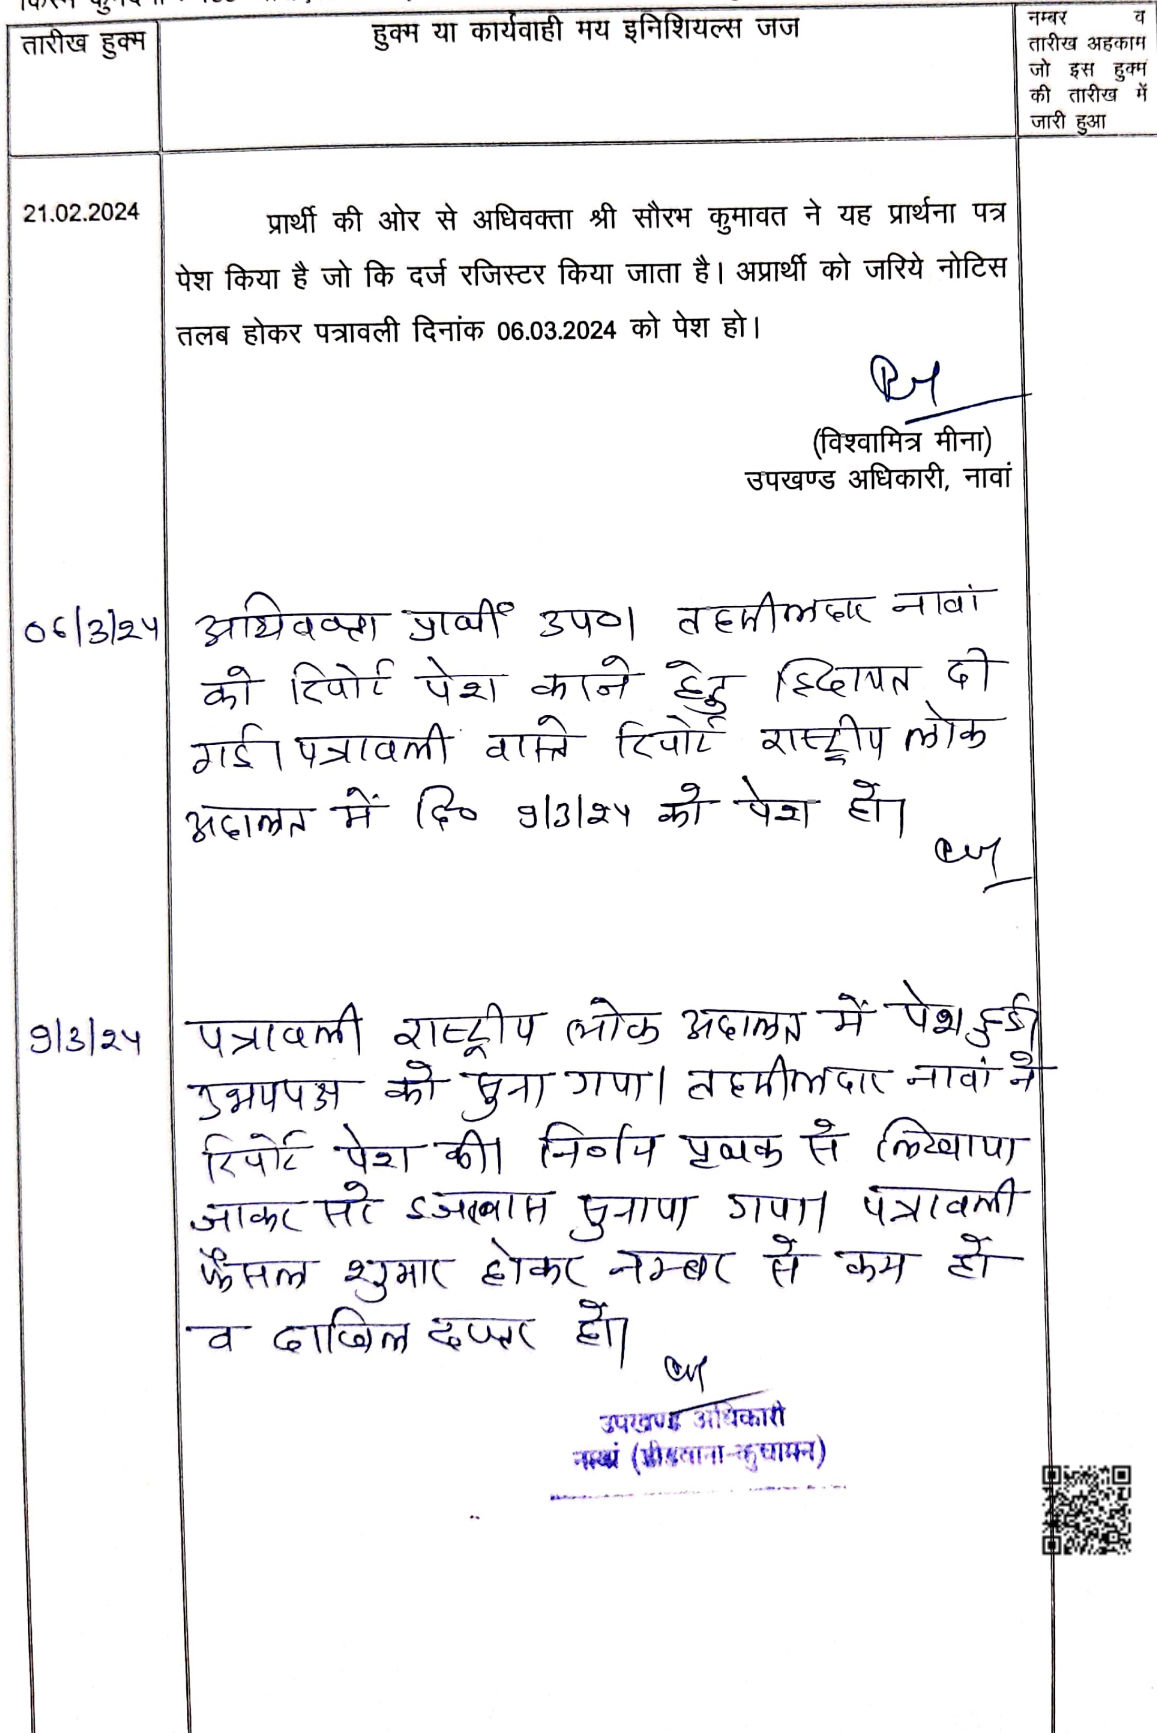 तारीख हुक्म
हुक्म या कार्यवाही मय इनिशियल्स जज
नम्बर व
तारीख अहकाम
जो इस हुक्म
की तारीख में
जारी हुआ
21.02.2024
प्रार्थी की ओर से अधिवक्ता श्री सौरभ कुमावत ने यह प्रार्थना पत्र
पेश किया है जो कि दर्ज रजिस्टर किया जाता है। अप्रार्थी को जरिये नोटिस
तलब होकर पत्रावली दिनांक 06.03.2024 को पेश हो।
(विश्वामित्र मीना)
उपखण्ड अधिकारी, नावां
06/3/24
अधिवक्ता प्रार्थी उप०। तहसीलदार नावां
को रिपोर्ट पेश करने हेतु हिदायत दी
गई। पत्रावली वास्ते रिपोर्ट राष्ट्रीय लोक
अदालत में दि० 9/3/24 को पेश हो।
9/3/24
पत्रावली राष्ट्रीय लोक अदालत में पेश हुई।
उभयपक्ष को सुना गया। तहसीलदार नावां ने
रिपोर्ट पेश की। निर्णय पृथक से लिखाया
जाकर सरे इजलास सुनाया गया। पत्रावली
फैसल शुमार होकर नम्बर से कम हो
व दाखिल दफ्तर हो।
उपखण्ड अधिकारी
नावां (डीडवाना-कुचामन)